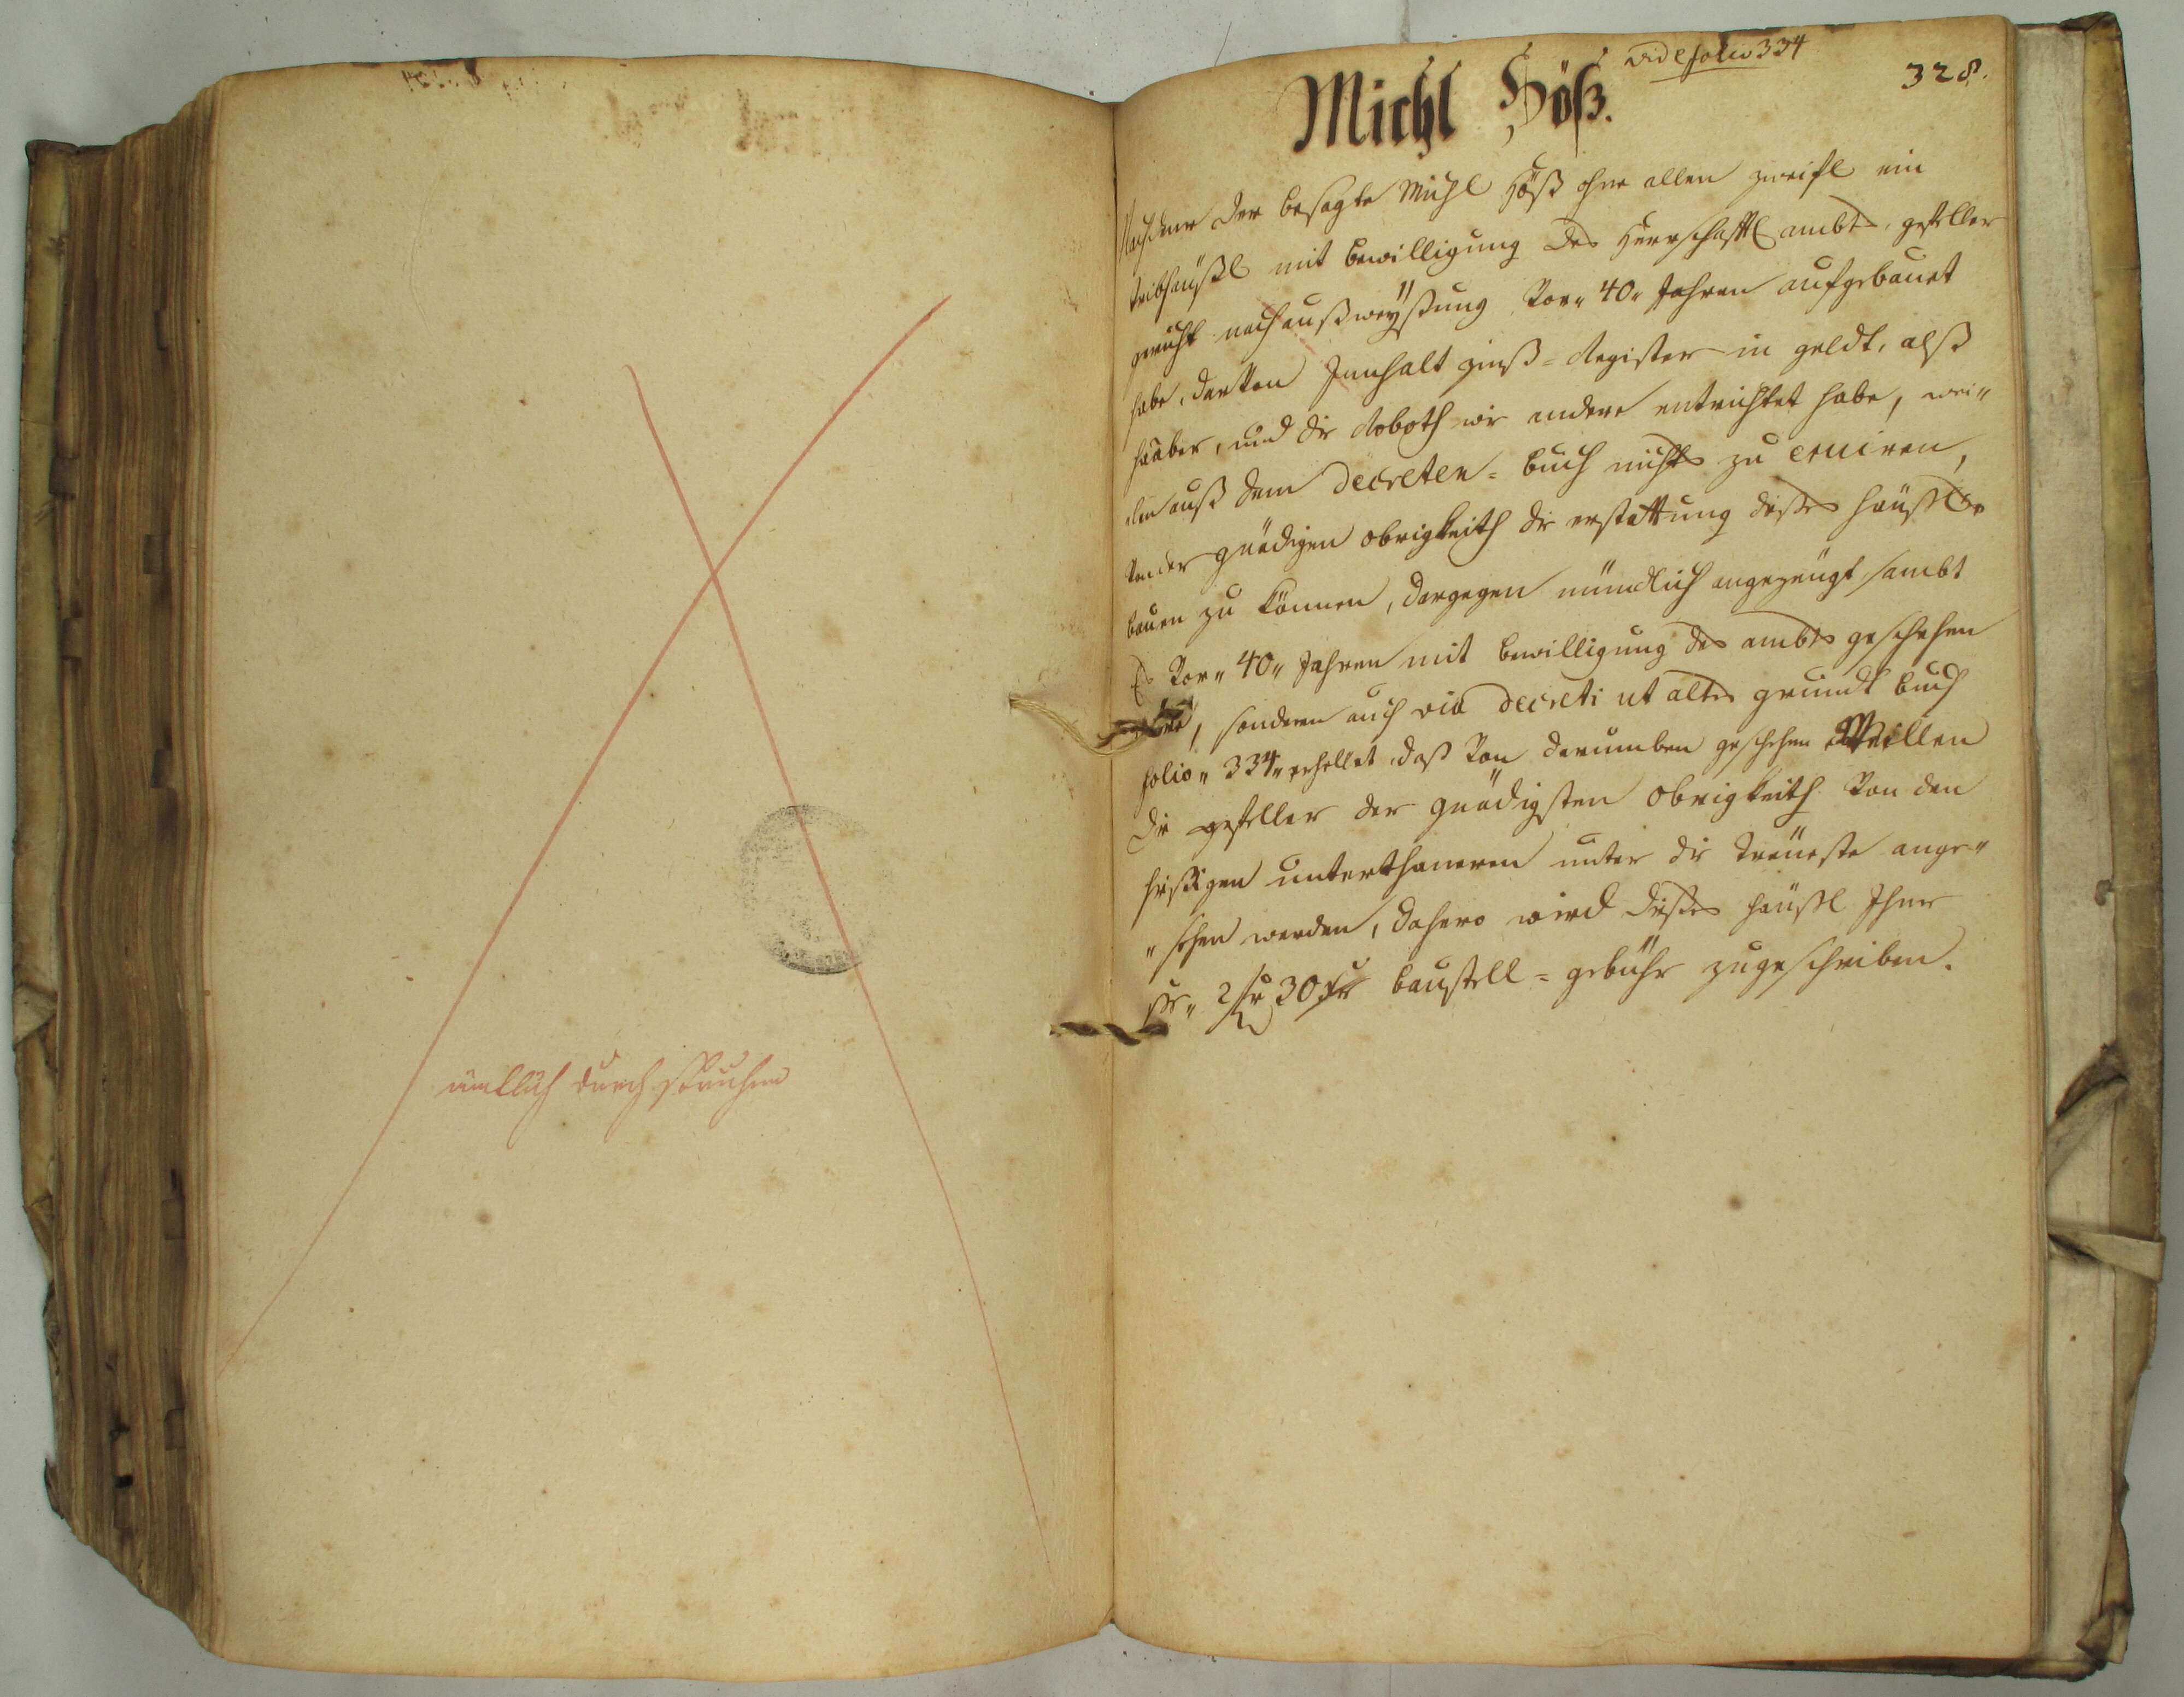 ämtlich durchstrichen
vide folio 334
328.
Michl Höß.
Nachdeme der besagte Michl Höß ohne allen zweifl ein
mit bewilligung des Herrschafftl ambts, gefeller
nach außweyßung Vor " 40 " Jahren aufgebauet
habe, Innhalt zinß = Register in geldt, alß
und die Roboth wie andere entrichtet habe, wei "
len auß dem decreten = buch nichts zu eruiren,
Von der gnädigen obrigkeith die erstattung dißes häußl er
bauen zu können, dargegen mündlich angezeügt sambt
Es Vor " 40 " Jahren mit bewilligung des ambts geschehen
wäre, sonderen auch via decreti ut altes grundt buch
folio " 334 " erhellet, daß Von darumben geschehen Weillen
die gefeller der gnädigsten obrigkeith Von den
hießigen unterthaneren unter die treüeste ange "
" sehen werden, dahero wird dießes häußl Ihme
2 fl 30 xr baustell = gebühr zugeschrieben.